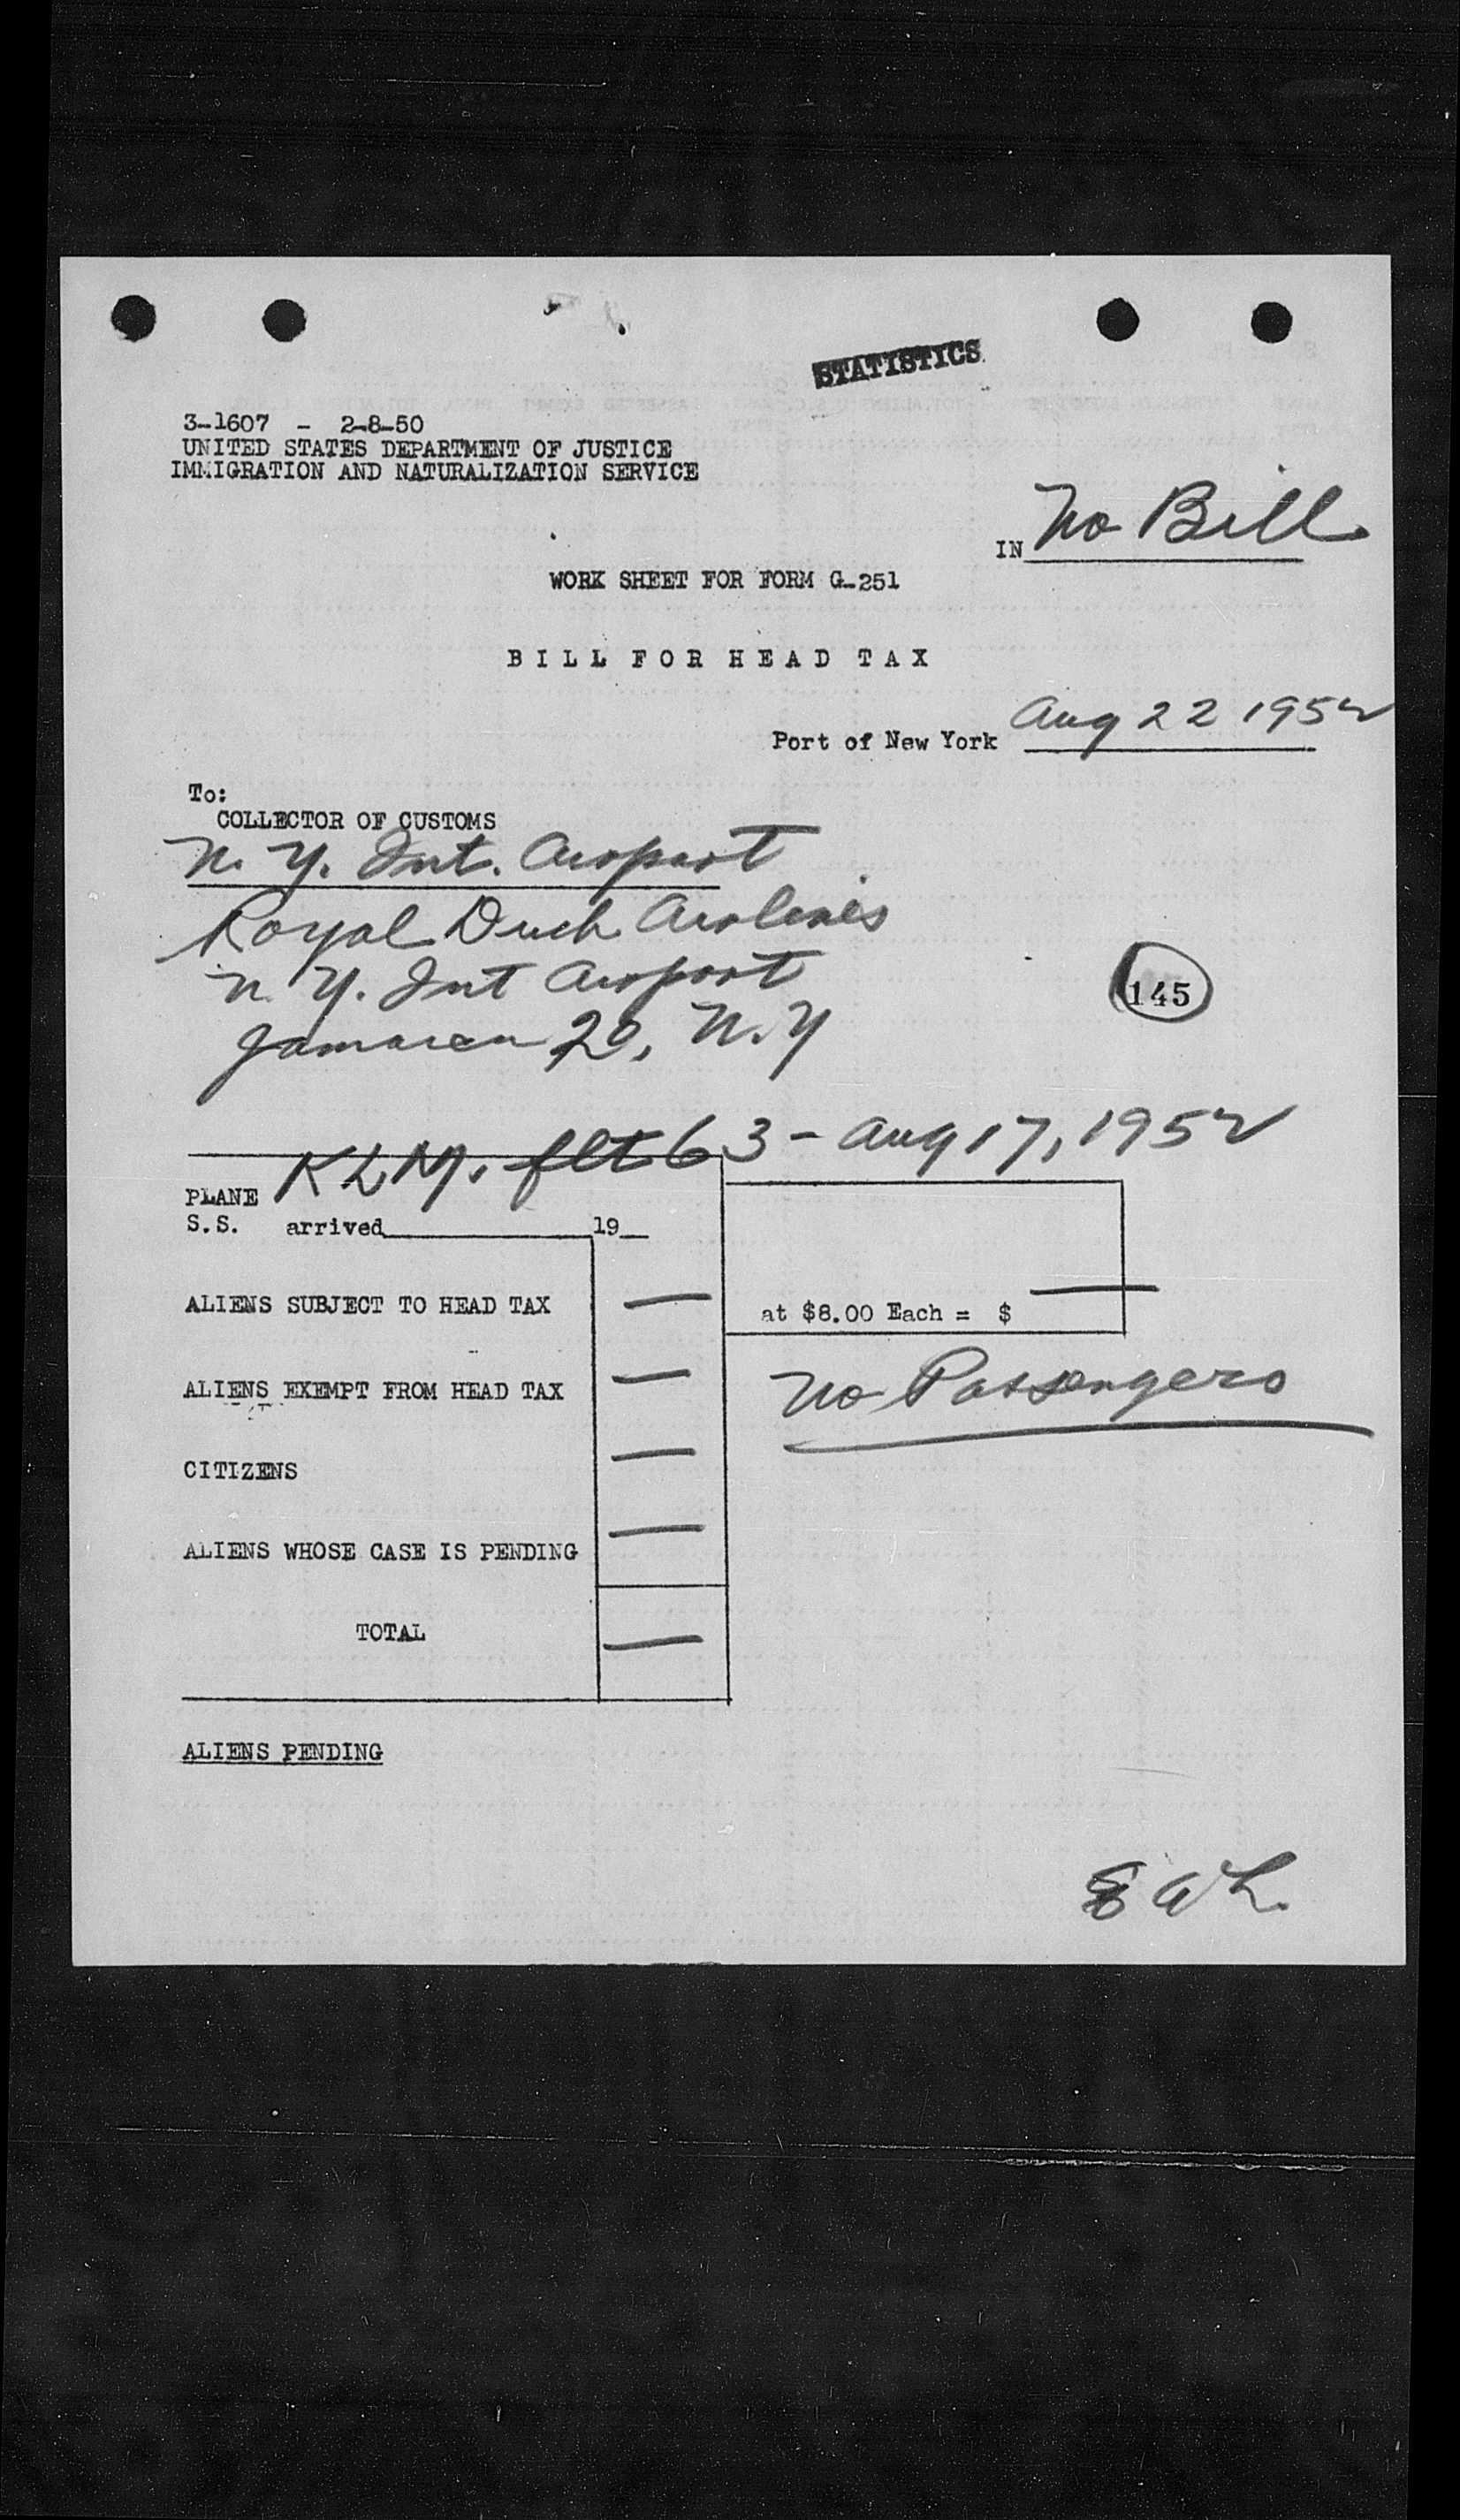 STATISTICS
3-1607 - 2-8-50
UNITED STATES DEPARTMENT OF JUSTICE
IMMIGRATION AND NATURALIZATION SERVICE
IN No Bill
WORK SHEET FOR FORM G-251
BILL FOR HEAD TAX
Port of New York Aug 22 1952
To:
COLLECTOR OF CUSTOMS
N. Y. Int. Airport
Royal Duch Airlines
N. Y. Int Airport
145
Jamaica 20, N.Y
PLANE KLM. flt 63 - Aug 17, 1952
S.S. arrived 19
ALIENS SUBJECT TO HEAD TAX —
at $8.00 Each = $ —
ALIENS EXEMPT FROM HEAD TAX —
No Passengers
CITIZENS —
ALIENS WHOSE CASE IS PENDING —
TOTAL —
ALIENS PENDING